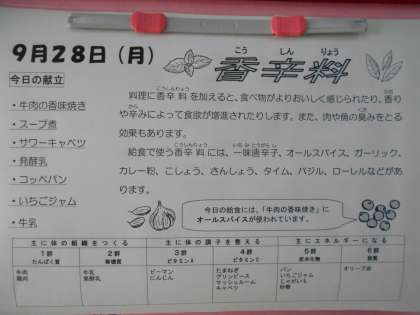 9月28日（月）
こう しん りょう
香辛料
今日の献立
・牛肉の香味焼き
・スープ煮
・サワーキャベツ
・発酵乳
・コッペパン
・いちごジャム
・牛乳
こうしんりょう
料理に香辛料を加えると、食べ物がよりおいしく感じられたり、香り
から
や辛みによって食欲が増進されたりします。また、肉や魚の臭みをとる
効果もあります。
こうしんりょう いちみとうがらし
給食で使う香辛料には、一味唐辛子、オールスパイス、ガーリック、
カレー粉、こしょう、さんしょう、タイム、バジル、ローレルなどがあ
ります。
今日の給食には、「牛肉の香味焼き」に
オールスパイスが使われています。
主に体の組織をつくる 主に体の調子を整える 主にエネルギーになる
1群 2群 3群 4群 5群 6群
たんぱく質 無機質 ビタミンA ビタミンC 炭水化物 脂質
牛肉 牛乳 ピーマン たまねぎ パン オリーブ油
鶏肉 発酵乳 にんじん グリンピース いちごジャム
マッシュルーム じゃがいも
キャベツ 砂糖